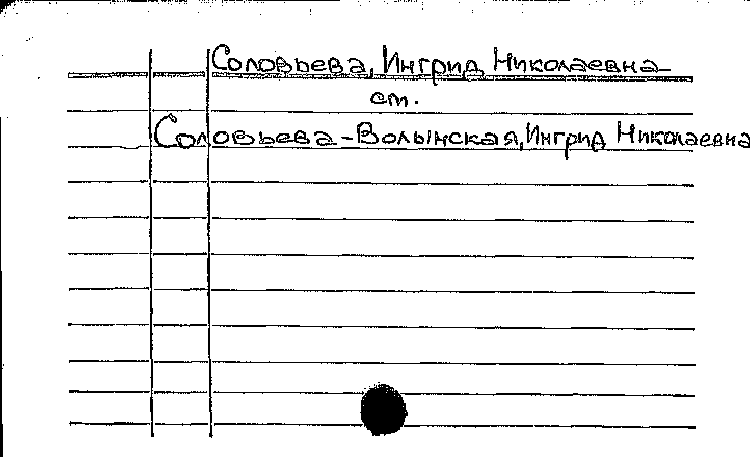 Соловьева, Ингрид Николаевна
ст.
Соловьева-Волынская, Ингрид Николаевна